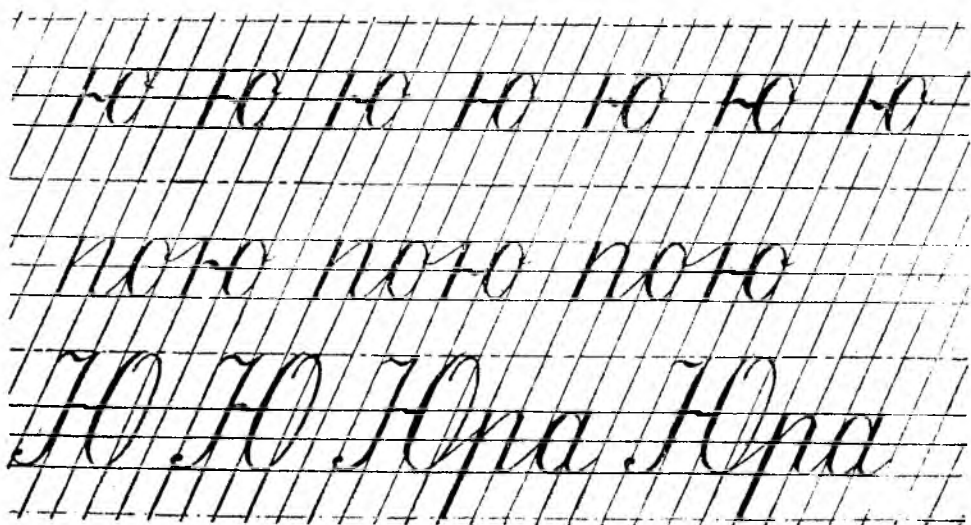 ю ю ю ю ю ю ю
пою пою пою
Ю Ю Юра Юра